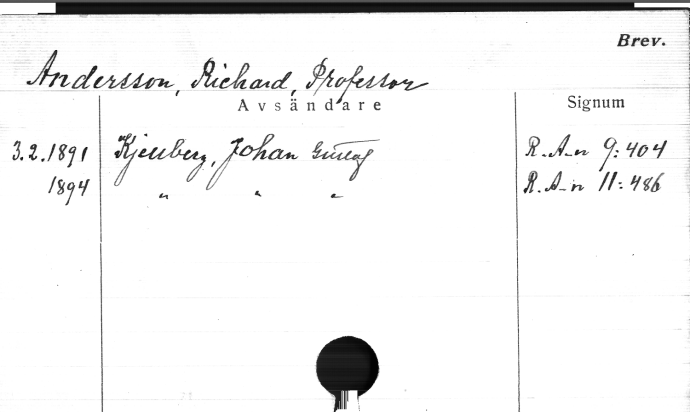 Brev.
Andersson, Richard, Professor
Avsändare Signum
3.2.1891 Kjellberg, Johan Gustaf R. A-n 9:404
1894 " " " R. A-n 11:486